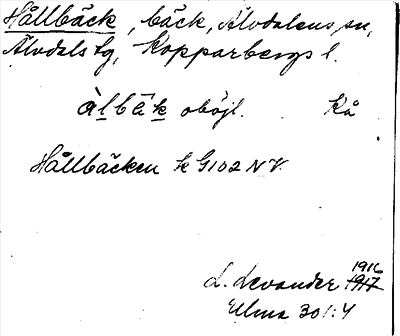 Hållbäck, bäck, Älvdalens sn,
Älvdals tg, Kopparbergs l.
àlbä̂k oböjl. Kå
Hållbäcken k G102 NV.
1916
L. Levander 1917
Ulma 301:4